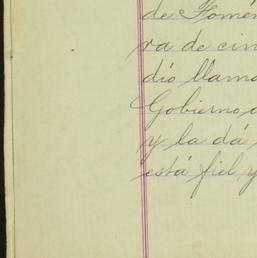 de Fomen
ra de cin
dio llama
Gobierno
y la dá
está fiel y